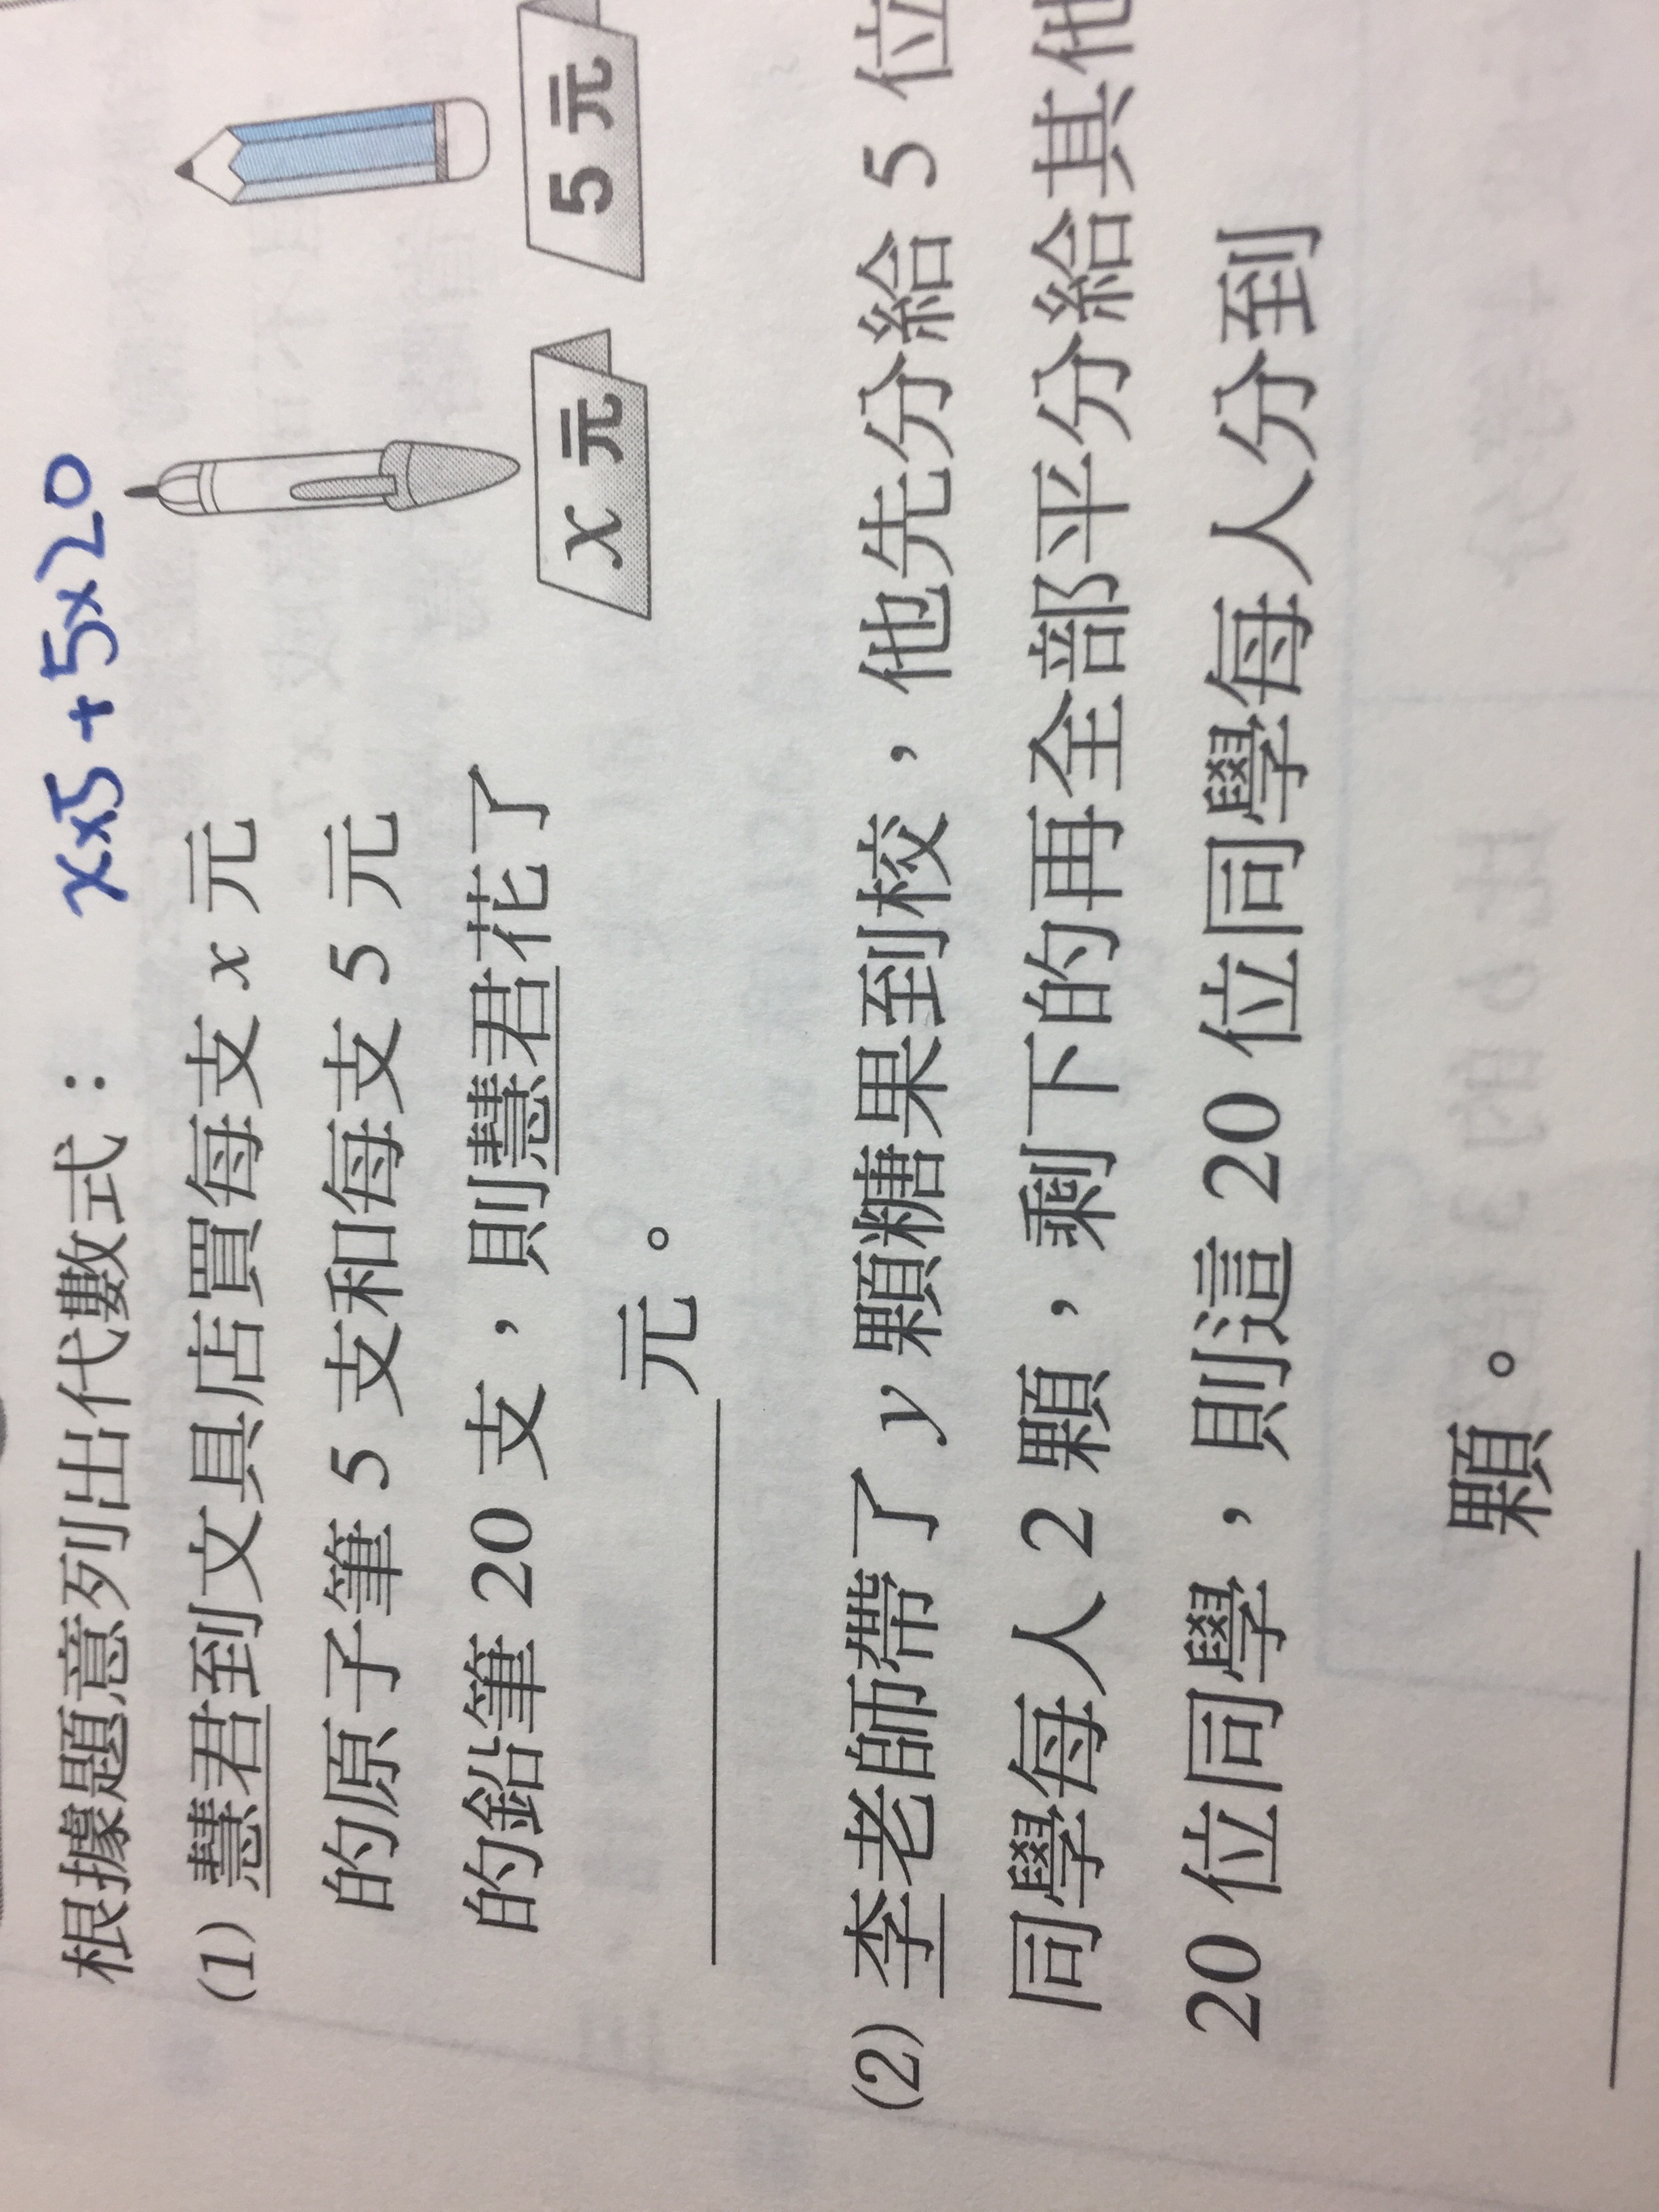 x×5+5×20
根據題意列出代數式：
(1) 慧君到文具店買每支 x 元
的原子筆 5 支和每支 5 元
的鉛筆 20 支，則慧君花了
元。
x 元
5 元
(2) 李老師帶了 y 顆糖果到校，他先分給 5 位
同學每人 2 顆，剩下的再全部平分給其他
20 位同學，則這 20 位同學每人分到
顆。